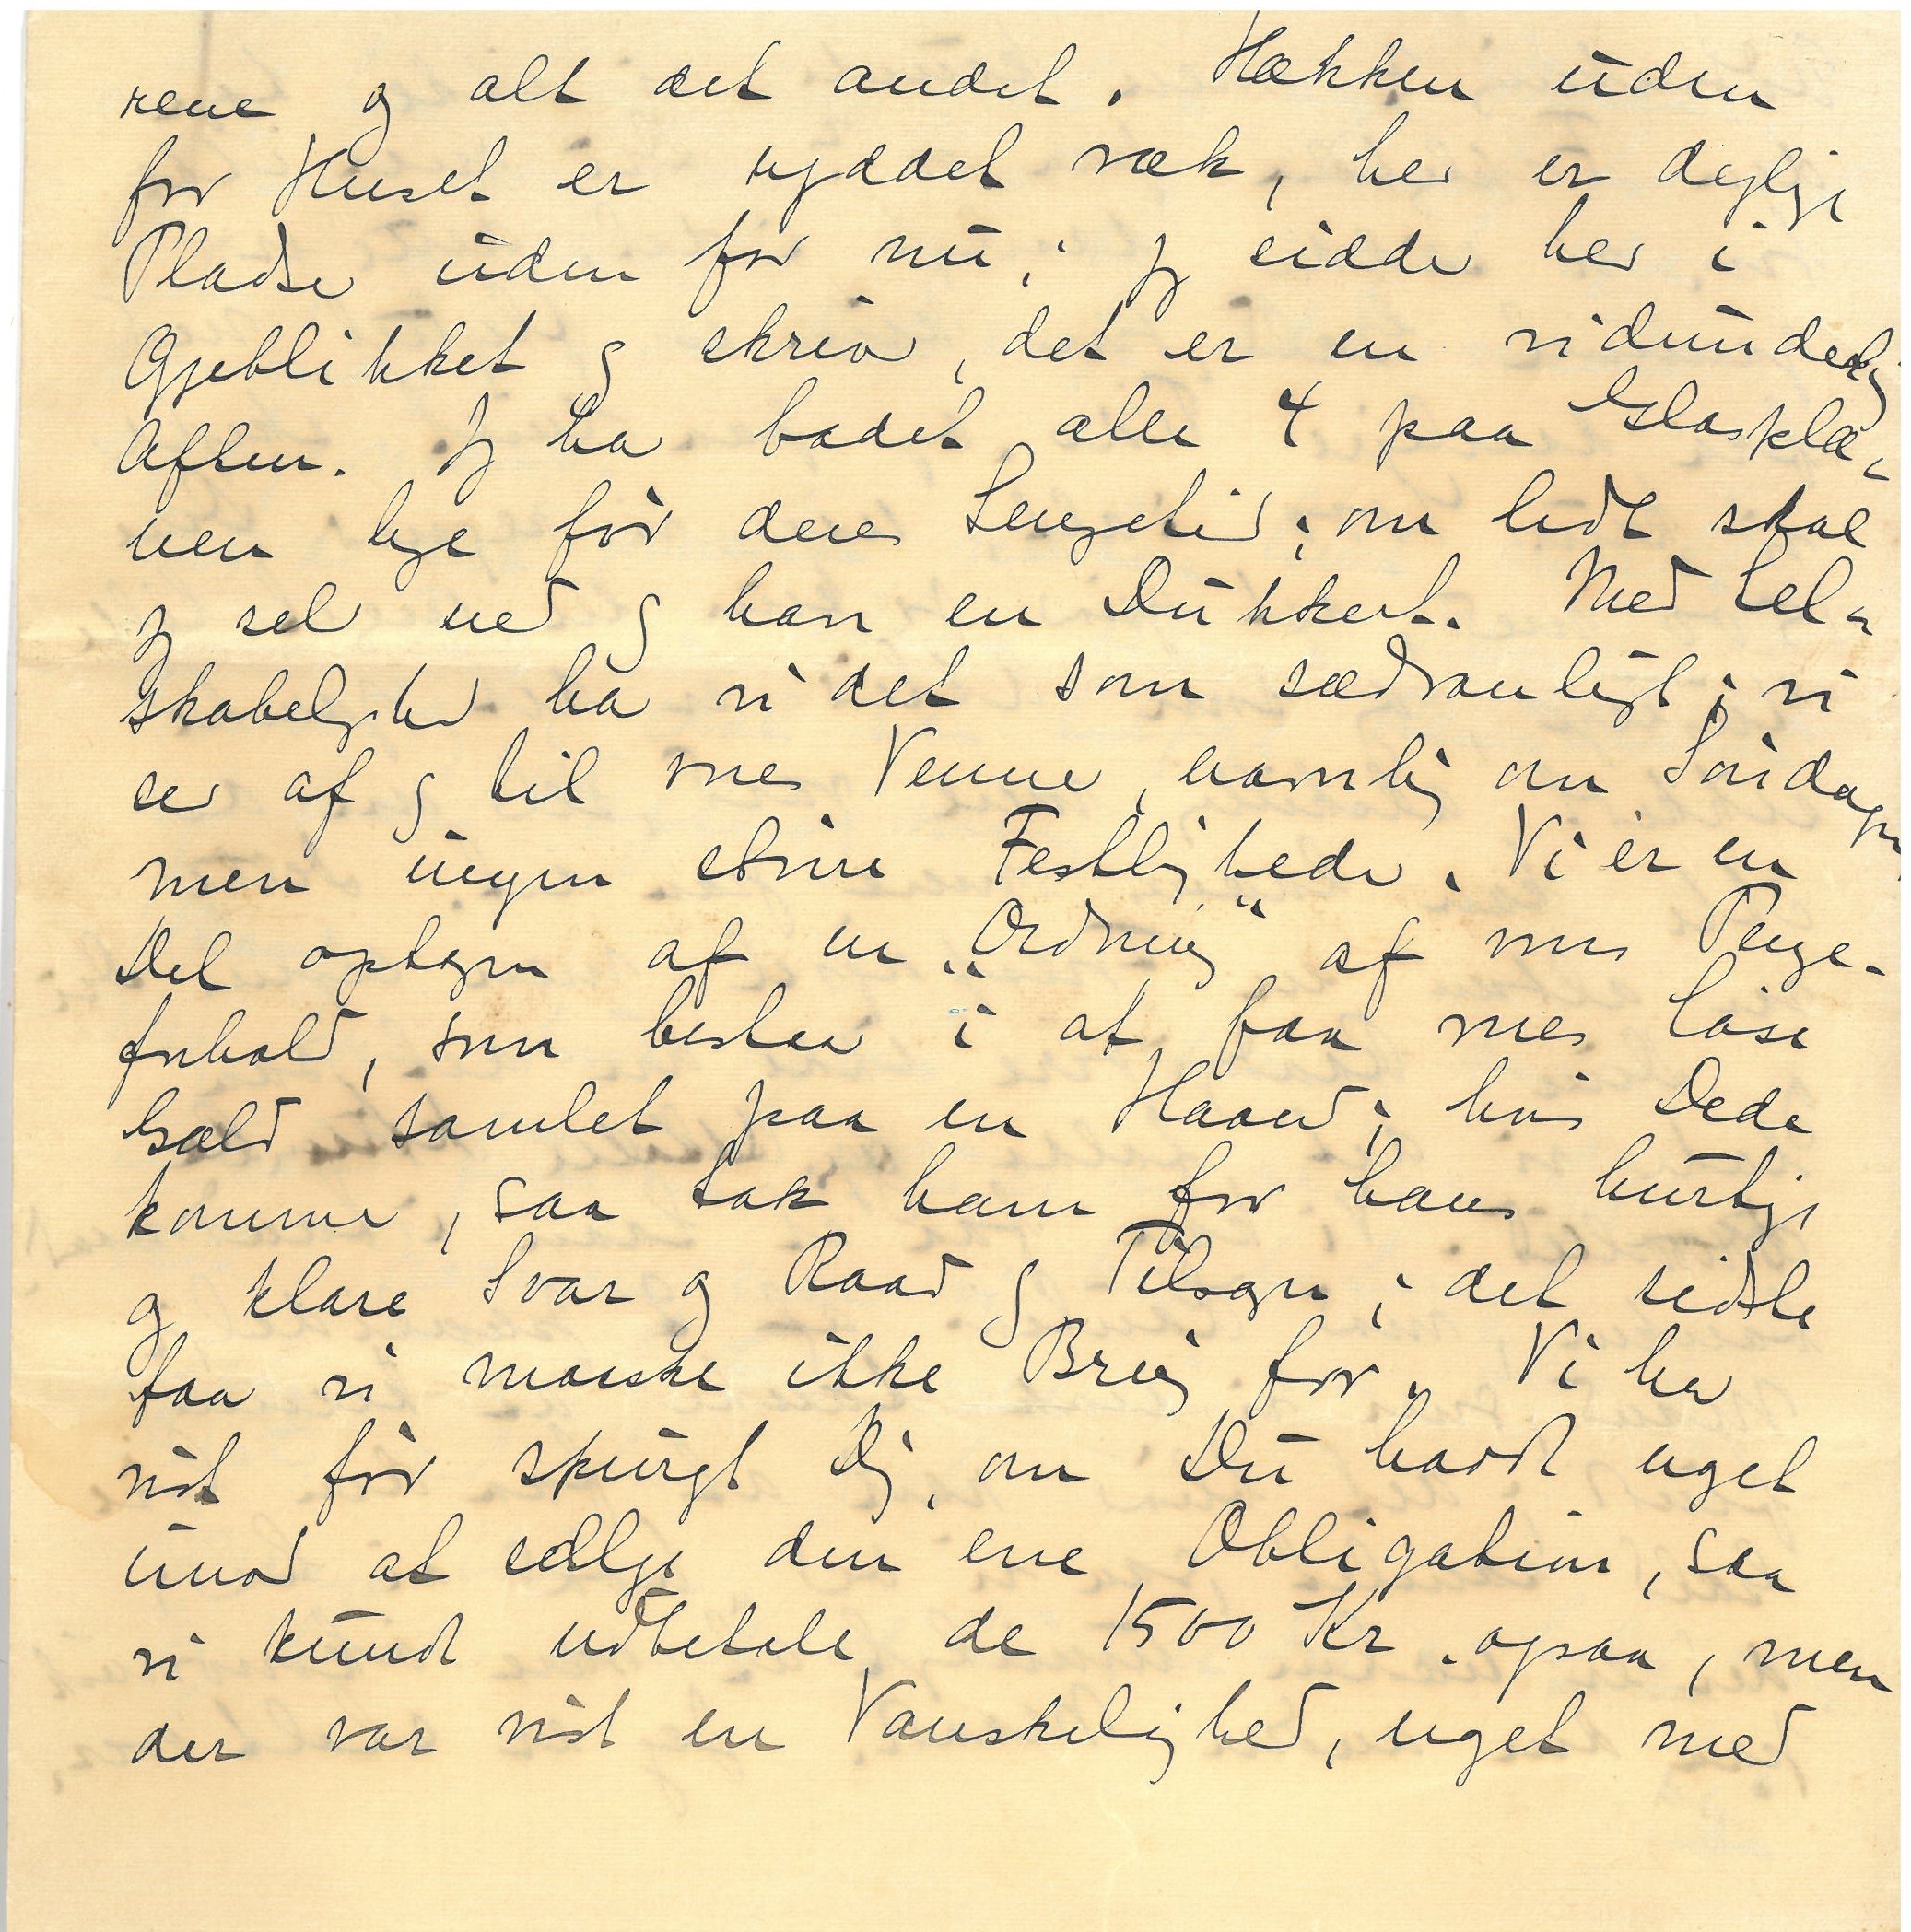 rene og alt det andet. Hækken uden
for Huset er ryddet væk, her er dejlige
Pladse uden for nu; jeg sidder her i
Øjeblikket og skriver, det er en vidunderlig
Aften. Jeg har badet alle 4 paa Græsplæ-
nen lige før deres Sengetid; om lidt skal
jeg selv ned og have en Dukkert. Med Sel-
skabelighed har vi det som sædvanligt; vi
ser af og til vores Venner, navnlig om Søndagen,
men ingen større Festligheder. Vi er en
Del optagen af en "Ordning" af vores Penge-
forhold, som bestaar i at faa vores løse
Gæld samlet paa en Haand; hvis Dede
kommer, saa tak ham for hans hurtige
og klare Svar og Raad og Tilsagn; det sidste
faar vi maaske ikke Brug for. Vi har
vist før spurgt Dig, om Du havde noget
imod at sælge den ene Obligation, saa
vi kunde udbetale de 1500 Kr. ogsaa, men
der var vist en Vanskelighed, noget med